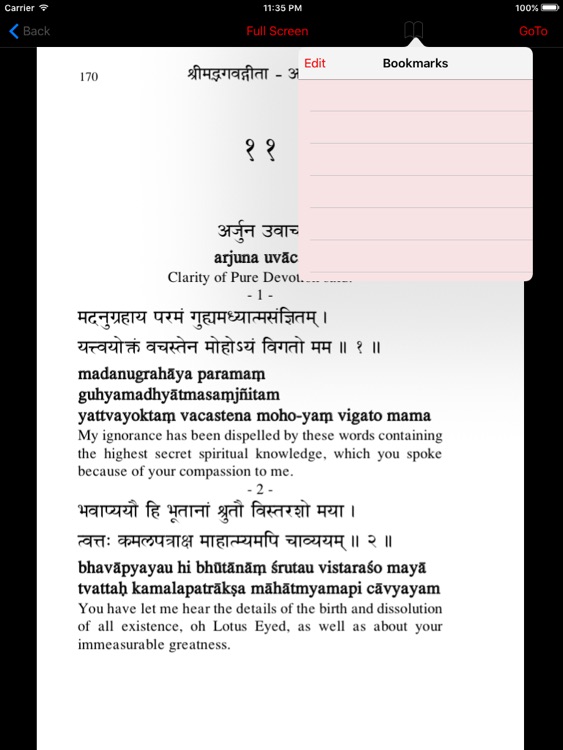 Carrier 11:35 PM 100%
Back Full Screen GoTo
Edit Bookmarks
170 श्रीमद्भगवद्गीता -
११
अर्जुन
arjuna
Clarity of Pure
- 1 -
मदनुग्रहाय परमं गुह्यमध्यात्मसंज्ञितम् ।
यत्त्वयोक्तं वचस्तेन मोहोऽयं विगतो मम ॥ १ ॥
madanugrahāya paramaṃ
guhyamadhyātmasaṃjñitam
yattvayoktaṃ vacastena moho-yaṃ vigato mama
My ignorance has been dispelled by these words containing
the highest secret spiritual knowledge, which you spoke
because of your compassion to me.
- 2 -
भवाप्ययौ हि भूतानां श्रुतौ विस्तरशो मया ।
त्वत्तः कमलपत्राक्ष माहात्म्यमपि चाव्ययम् ॥ २ ॥
bhavāpyayau hi bhūtānāṃ śrutau vistaraśo mayā
tvattaḥ kamalapatrākṣa māhātmyamapi cāvyayam
You have let me hear the details of the birth and dissolution
of all existence, oh Lotus Eyed, as well as about your
immeasurable greatness.